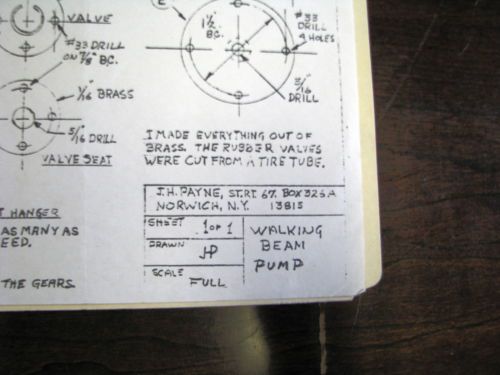 VALVE
#33 DRILL
ON 7/8" BC.
1/16" BRASS
5/16 DRILL
VALVE SEAT
E
1 1/2"
BC.
#33
DRILL
4 HOLES
3/16
DRILL
I MADE EVERYTHING OUT OF
BRASS. THE RUBBER VALVES
WERE CUT FROM A TIRE TUBE.
HANGER
AS MANY AS
EED.
THE GEARS
J.H. PAYNE, ST.RT 67. BOX 326A
NORWICH, N.Y. 13815
SHEET 1 OF 1
DRAWN JHP
SCALE FULL
WALKING
BEAM
PUMP